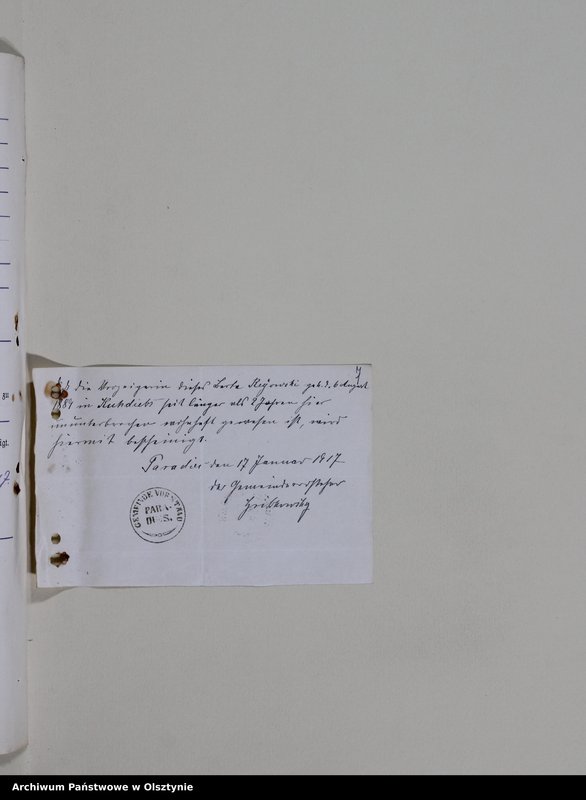 7
Daß die Vorzeigerin dieses Berta geb. d. 6 August
1889 in Kukukuks seit länger als 2 Jahren hier
ununterbrochen wohnhaft gewesen ist, wird
hiermit bescheinigt.
Paradies den 17 Januar 1917
der Gemeindevorsteher
GEMEINDE VORSTAND
PARA-
DIES.
Archiwum Państwowe w Olsztynie